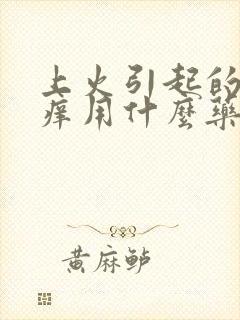 上火引起的
痒用什麼藥
黄麻鲈